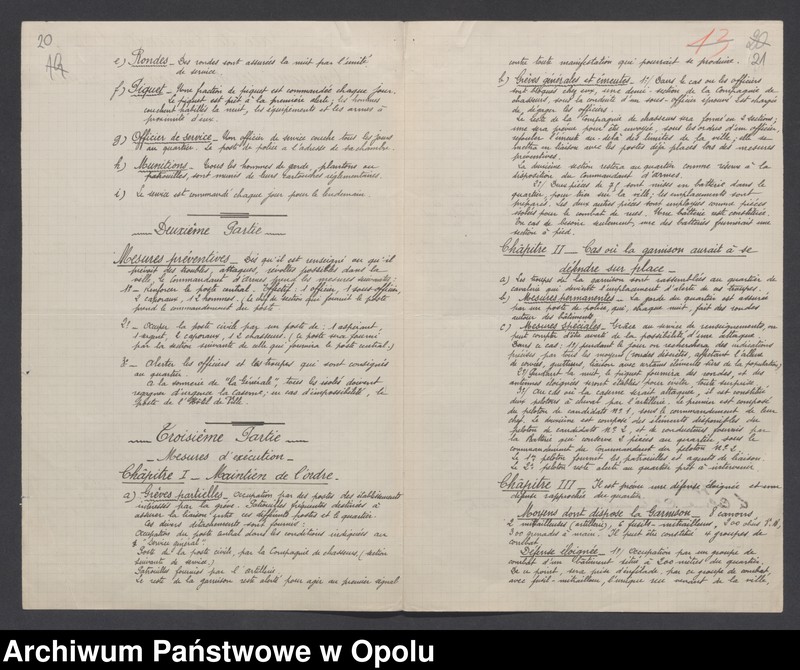 20
19
e) Rondes _ Des rondes sont assurées la nuit par l'unité
de service.
f) Piquet _ Une fraction de piquet est commandée chaque jour.
Le piquet est prêt à la première alerte; les hommes
couchent habillés la nuit, les équipements et les armes à
proximité d'eux.
g) Officier de service _ Un officier de service couche tous les jours
au quartier. Le poste de police a l'adresse de sa chambre.
h) Munitions _ Tous les hommes de garde, plantons ou
patrouilles, sont munis de leurs cartouches réglementaires.
i) Le service est commandé chaque jour pour le lendemain.
Deuxième Partie
Mesures préventives _ Dès qu'il est renseigné ou qu'il
prévoit des troubles, attaques, révoltes possibles dans la
ville, le commandant d'armes prend les mesures suivantes:
1º _ Renforcer le poste central. Effectif: 1 officier, 1 sous-officier,
2 caporaux, 12 hommes. (Le chef de section qui fournit le poste
prend le commandement du poste
2º _ Occuper la poste civile par un poste de: 1 aspirant,
1 sergent, 2 caporaux, 12 chasseurs. (Ce poste sera fourni
par la section suivante de celle qui fournira le poste central.)
3º _ Alerter les officiers et les troupes qui sont consignés
au quartier.
A la sonnerie de "La Générale", tous les isolés doivent
regagner d'urgence la caserne; en cas d'impossibilité, le
Poste de l'Hôtel de Ville.
Troisième Partie
_ Mesures d'exécution _
Châpitre I _ Maintien de l'ordre.
a) Grèves partielles _ Occupation par des postes des établissements
intéressés par la grève. Patrouilles fréquentes destinées à
assurer la liaison entre ces différents postes et le quartier.
Ces divers détachements sont fournis:
Occupation du poste central dans les conditions indiquées au
§ "Service général".
Poste de la poste civile, par la Compagnie de chasseurs (section
suivante de service.)
Patrouilles fournies par l'artillerie.
Le reste de la garnison reste alerté pour agir au premier signal
13
20
21
contre toute manifestation qui pourrait se produire.
b) Grèves générales et émeutes _ 1º/ Dans le cas où les officiers
sont bloqués chez eux, une demi-section de la Compagnie de
chasseurs, sous la conduite d'un sous-officier éprouvé est chargée
de dégager les officiers.
Le reste de la Compagnie de chasseurs sera formé en 2 sections;
une sera prévue pour être envoyée, sous les ordres d'un officier,
refouler l'émeute au-delà des limites de la ville; elle se
mettra en liaison avec les postes déjà placés lors des mesures
préventives.
La deuxième section restera au quartier comme réserve à la
disposition du Commandant d'armes.
2º/ Deux pièces de 75 sont mises en batterie dans le
quartier, pour tirer sur la ville; les emplacements sont
préparés. Les deux autres pièces sont employées comme pièces
isolées pour le combat de rues. Une batterie est constituée.
En cas de besoin seulement, une des batteries fournirait une
section à pied.
Châpitre II _ Cas où la garnison aurait à se
défendre sur place _
a) Les troupes de la garnison sont rassemblées au quartier de
cavalerie qui devient l'emplacement d'alerte de ces troupes.
b) Mesures permanentes _ La garde du quartier est assurée
par un poste de police, qui, chaque nuit, fait des rondes
autour des bâtiments.
c) Mesures spéciales _ Grâce au service de renseignements, on
peut compter d'être averti de la possibilité d'une attaque.
Dans ce cas: 1º/ pendant le jour on recherchera des indications
précises par tous les moyens (rondes discrètes, affectant l'allure
de corvées, guetteurs, liaison avec certains éléments sûrs de la population.)
2º/ Pendant la nuit, le piquet fournira des rondes, et des
antennes éloignées seront établies pour éviter toute surprise.
3º/ Au cas où la caserne devait attaquer, il est constitué
deux pelotons à cheval par l'artillerie. Le premier est composé
du peloton de candidats Nº 1, sous le commandement de leur
chef. Le deuxième est composé des éléments disponibles du
Peloton de candidats Nº 2, et de conducteurs fournis par
la Batterie qui conserve 2 pièces au quartier, sous le
commandement du Commandant du peloton Nº 2.
Le 1er peloton fournit les patrouilles et agents de liaison.
Le 2e peloton reste alerté au quartier prêt à intervenir.
Châpitre III _ Il est prévu une défense éloignée et une
défense rapprochée du quartier.
Moyens dont dispose la Garnison _ 8 canons,
2 mitrailleuses (artillerie), 6 fusils-mitrailleurs, 200 obus
300 grenades à main. Il peut être constitué 4 groupes de
combat.
Défense éloignée _ 1º/ Occupation par un groupe de
combat d'un bâtiment situé à 200 mètres du quartier.
De ce point, sera prise d'enfilade, par ce groupe de combat,
avec fusil-mitrailleur, l'unique rue venant de la ville,
Archiwum Państwowe w Opolu